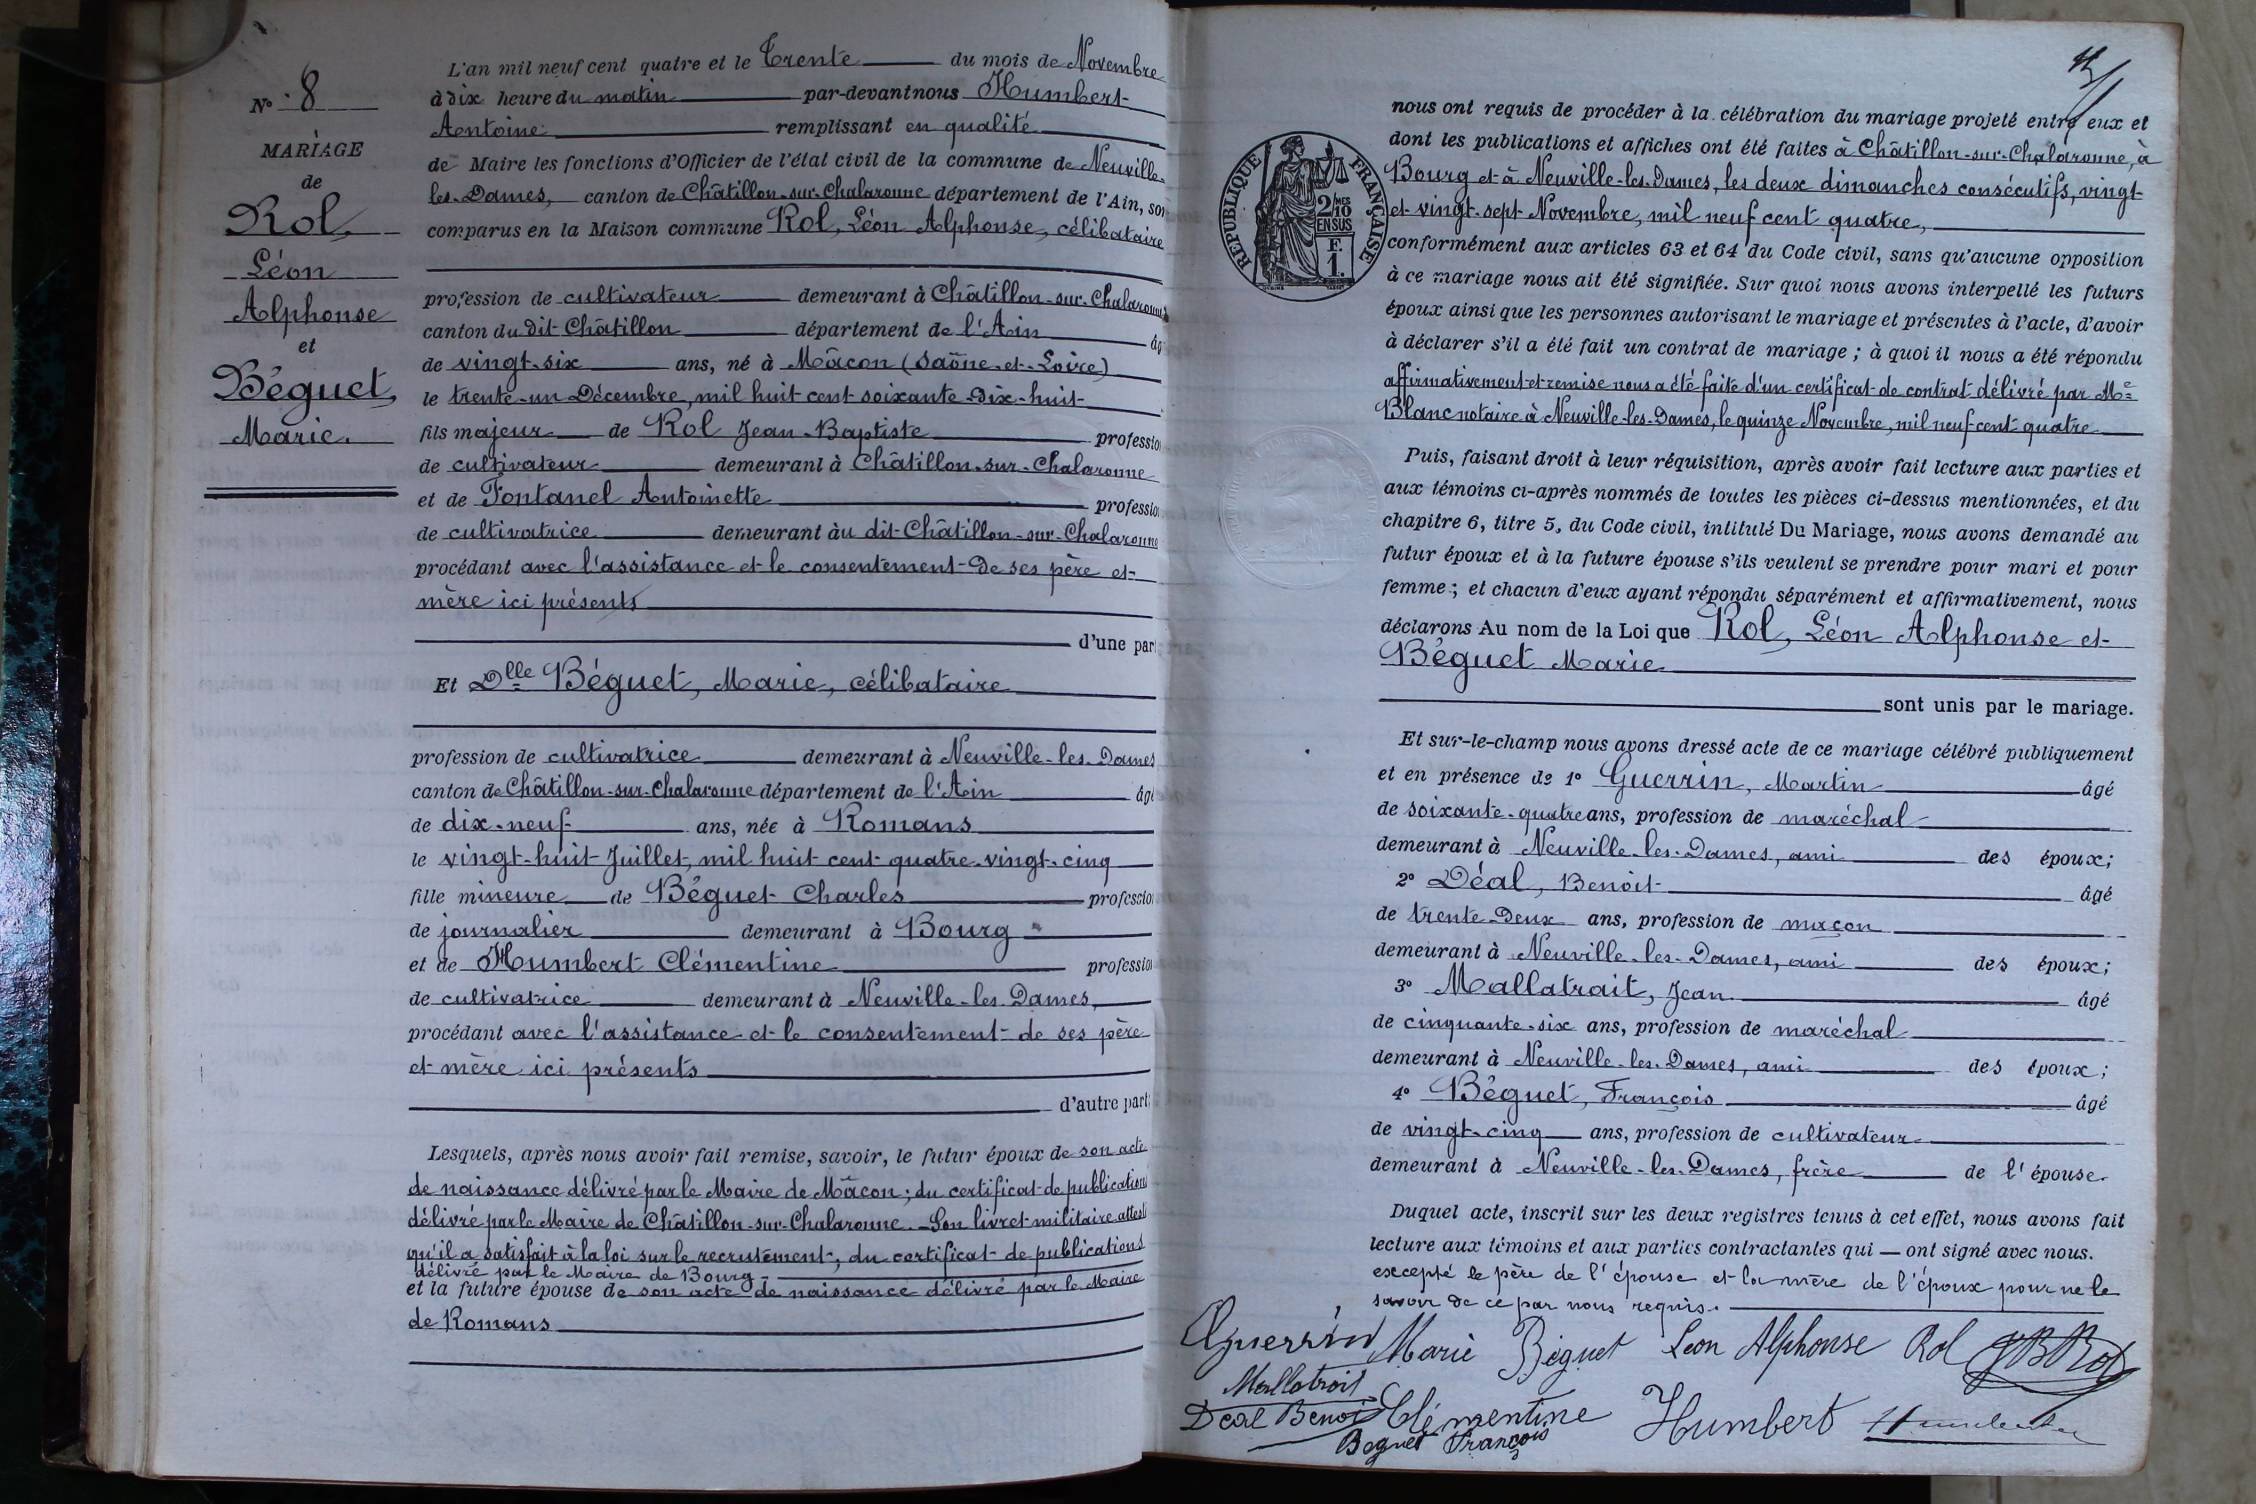 N° 8
MARIAGE
de
Rol,
Léon
Alphonse
et
Béguet,
Marie.
L'an mil neuf cent quatre et le Trente du mois de Novembre
à dix heure du matin par-devant nous Humbert
Antoine remplissant en qualité
de Maire les fonctions d'Officier de l'état civil de la commune de Neuville-
les-Dames, canton de Châtillon-sur-Chalaronne département de l'Ain, son
comparus en la Maison commune Rol, Léon Alphonse, célibataire
profession de cultivateur demeurant à Châtillon-sur-Chalaronne
canton du dit Châtillon département de l'Ain âg
de vingt-six ans, né à Mâcon (Saône-et-Loire)
le trente-un Décembre, mil huit cent soixante-dix-huit
fils majeur de Rol Jean-Baptiste professio
de cultivateur demeurant à Châtillon-sur-Chalaronne
et de Fontanel Antoinette professio
de cultivatrice demeurant àu dit Châtillon-sur-Chalaronne
procédant avec l'assistance et le consentement de ses père et
mère ici présents
d'une part
Et Dlle Béguet, Marie, célibataire
profession de cultivatrice demeurant à Neuville-les-Dames
canton de Châtillon-sur-Chalaronne département de l'Ain âgé
de dix-neuf ans, née à Romans
le vingt-huit Juillet, mil huit cent quatre-vingt-cinq
fille mineure de Béguet Charles profession
de journalier demeurant à Bourg
et de Humbert Clémentine profession
de cultivatrice demeurant à Neuville-les-Dames,
procédant avec l'assistance et le consentement de ses père
et mère ici présents
d'autre part;
Lesquels, après nous avoir fait remise, savoir, le futur époux de son acte
de naissance délivré par le Maire de Mâcon; du certificat de publications
délivré par le Maire de Châtillon-sur-Chalaronne. Son livret militaire atteste
qu'il a satisfait à la loi sur le recrutement; du certificat de publications
délivré par le Maire de Bourg
et la future épouse de son acte de naissance délivré par le Maire
de Romans
nous ont requis de procéder à la célébration du mariage projeté entre eux et
dont les publications et affiches ont été faites à Châtillon-sur-Chalaronne, à
Bourg et à Neuville-les-Dames, les deux dimanches consécutifs, vingt
et vingt-sept Novembre, mil neuf cent quatre,
RÉPUBLIQUE FRANÇAISE
2/10 MES
EN SUS
F.
1.
conformément aux articles 63 et 64 du Code civil, sans qu'aucune opposition
à ce mariage nous ait été signifiée. Sur quoi nous avons interpellé les futurs
époux ainsi que les personnes autorisant le mariage et présentes à l'acte, d'avoir
à déclarer s'il a été fait un contrat de mariage; à quoi il nous a été répondu
affirmativement et remise nous a été faite d'un certificat de contrat délivré par Me
Blanc notaire à Neuville-les-Dames, le quinze Novembre, mil neuf cent quatre
Puis, faisant droit à leur réquisition, après avoir fait lecture aux parties et
aux témoins ci-après nommés de toutes les pièces ci-dessus mentionnées, et du
chapitre 6, titre 5, du Code civil, intitulé Du Mariage, nous avons demandé au
futur époux et à la future épouse s'ils veulent se prendre pour mari et pour
femme; et chacun d'eux ayant répondu séparément et affirmativement, nous
déclarons Au nom de la Loi que Rol, Léon Alphonse et
Béguet Marie
sont unis par le mariage.
Et sur-le-champ nous avons dressé acte de ce mariage célébré publiquement
et en présence de 1° Guerrin, Martin âgé
de soixante-quatre ans, profession de maréchal
demeurant à Neuville-les-Dames, ami des époux;
2° Déal, Benoît âgé
de trente-deux ans, profession de maçon
demeurant à Neuville-les-Dames, ami des époux;
3° Mallatrait, Jean âgé
de cinquante-six ans, profession de maréchal
demeurant à Neuville-les-Dames, ami des époux;
4° Béguet, François âgé
de vingt-cinq ans, profession de cultivateur
demeurant à Neuville-les-Dames, frère de l'épouse.
Duquel acte, inscrit sur les deux registres tenus à cet effet, nous avons fait
lecture aux témoins et aux parties contractantes qui ont signé avec nous.
excepté le père de l'épouse et la mère de l'époux pour ne le
savoir de ce par nous requis.
Guerrin Marie Béguet Leon Alphonse Rol JB Rol
Mallatrait
Deal Benoit Clémentine Humbert Humbert
Beguet François